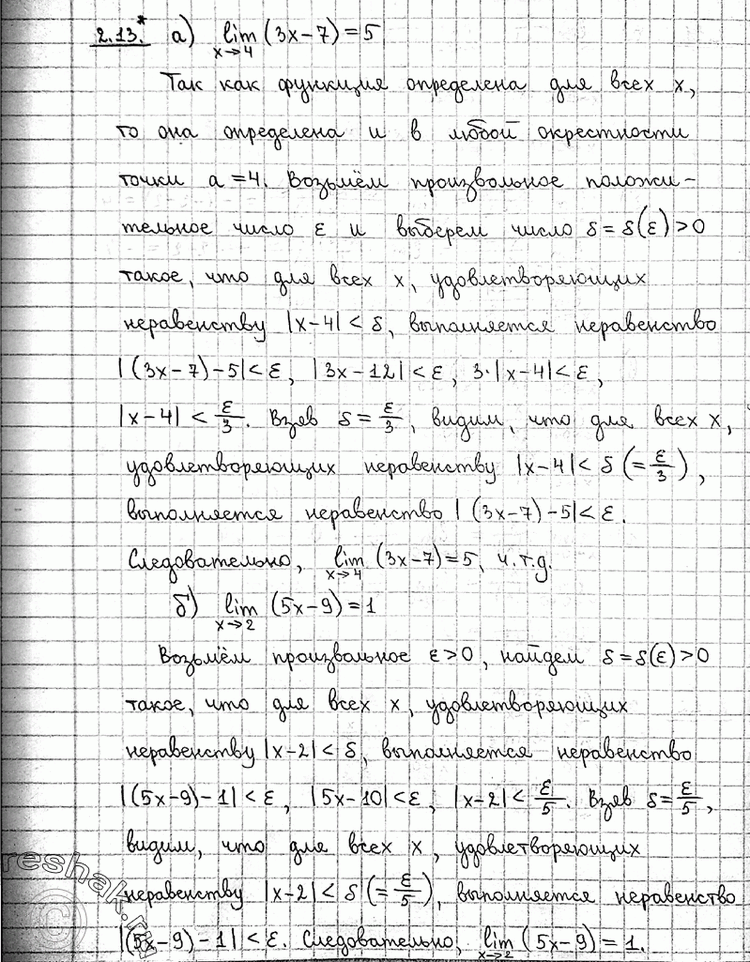 2.13.* а) lim x→4 (3x-7)=5
Так как функция определена для всех x,
то она определена и в любой окрестности
точки a=4. Возьмём произвольное положи-
тельное число ε и выберем число δ=δ(ε)>0
такое, что для всех x, удовлетворяющих
неравенству |x-4|<δ, выполняется неравенство
|(3x-7)-5|<ε, |3x-12|<ε, 3·|x-4|<ε,
|x-4|<ε/3. Взяв δ=ε/3, видим, что для всех x,
удовлетворяющих неравенству |x-4|<δ(=ε/3),
выполняется неравенство |(3x-7)-5|<ε.
Следовательно, lim x→4 (3x-7)=5, ч.т.д.
б) lim x→2 (5x-9)=1
Возьмём произвольное ε>0, найдем δ=δ(ε)>0
такое, что для всех x, удовлетворяющих
неравенству |x-2|<δ, выполняется неравенство
|(5x-9)-1|<ε, |5x-10|<ε, |x-2|<ε/5. Взяв δ=ε/5,
видим, что для всех x, удовлетворяющих
неравенству |x-2|<δ(=ε/5), выполняется неравенство
|(5x-9)-1|<ε. Следовательно, lim x→2 (5x-9)=1.
reshak.ru
©